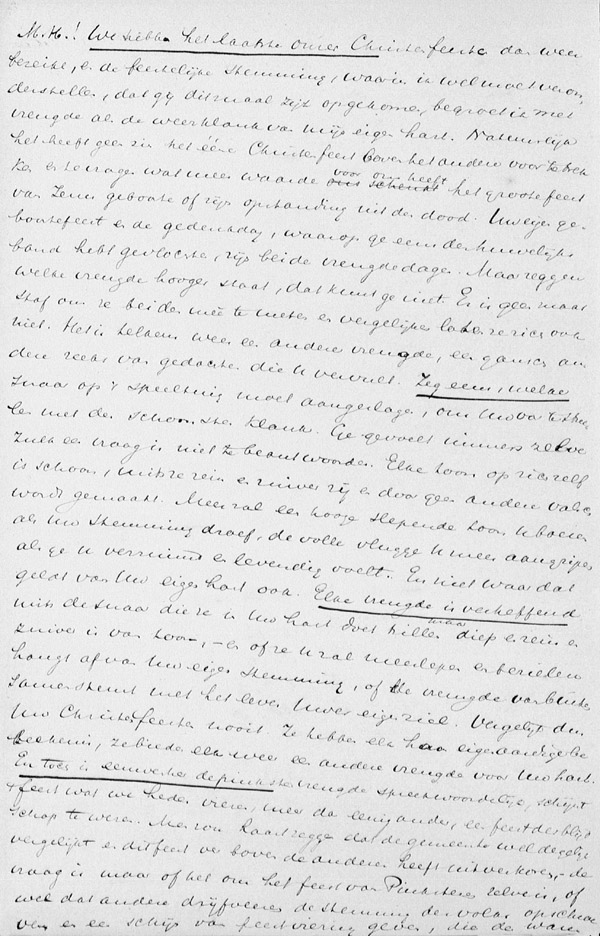 M. H.! We hebben het laatste onzer Christenfeesten dan weer
bereikt, en de feestelijke stemming, waarin ik wel moet veron,
derstellen, dat gij ditmaal zijt opgekomen, begroet ik met
vreugde als de weerklank van mijn eigen hart. Natuurlijk
het heeft geen zin het ééne Christenfeest boven het andere voor te trek
ken en te vragen wat meer waarde voor ons heeft het groote feest
van Jezus geboorte of zijn opstanding uit den dood. Uw eigen ge,
boortefeest en de gedenkdag, waarop ge eens den huwelijks
band hebt gevlochten, zijn beide vreugdedagen. Maar zeggen
welke vreugde hooger staat, dat kunt ge niet. Er is geen maat
staf om ze beiden meê te meten en vergelijken laten ze zich ook
niet. Het is telkens weer een andere vreugde, een gansch an
dere reeks van gedachten die u vervult. Zeg eens, welke
snaar op 't speeltuig moet aangeslagen, om Uw oor te stree
len met den schoonsten klank. Ge gevoelt immers zelve
zulk een vraag is niet te beantwoorden. Elke toon op zich zelf
is schoon, mits ze rein en zuiver zij en door geen andere valsch
wordt gemaakt. Meer zal een hooge slepende toon U boeien
als Uw stemming droef, de volle vlugge U meer aangrijpen
als ge U verruimd en levendig voelt. En niet waar dat
geldt van Uw eigen hart ook. Elke vreugde is verheffend
mits de snaar die ze in Uw hart doet trillen maar diep en rein en
zuiver is van toon, - en of ze U zal meeslepen en bezielen
hangt af van Uw eigen stemming, of de vreugde van buiten
samenstemt met het leven Uwer eigen ziel. Vergelijkt dus
Uw Christenfeesten nooit. Ze hebben elk haar eigenaardige be
teekenis, ze bieden elk weer een andere vreugde voor Uw hart.
En toch is eenmaal de pinkstervreugde spreekwoordelijk, schijnt
't feest wat we heden vieren, meer dan eenig ander, een feest der blijd
schap te wezen. Men zou haast zeggen dat de gemeente wel degelijk
vergelijkt en dit feest ver boven de andere heeft uitverkoren, - de
vraag is maar of het om het feest van Pinksteren zelve is, of
wel dat andere drijfveeren de stemming der volken opschroe
ven en een schijn van feestviering geven, die de ware